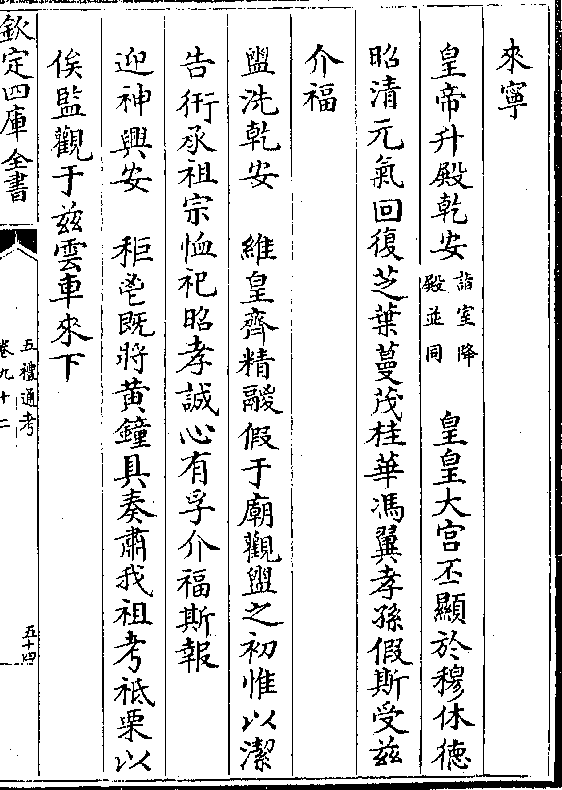 來寧
皇帝升殿乾安詣室降殿並同　皇皇大宮丕顯於穆休德
昭清元氣回復芝葉蔓茂桂華馮翼孝孫假斯受兹
介福
盥洗乾安　維皇齊精鬷假于廟觀盥之初惟以潔
告衎承祖宗恤祀昭孝誠心有孚介福斯報
迎神興安　秬鬯既將黄鐘具奏肅我祖考祗栗以
俟監觀于兹雲車來下
欽定四庫全書
五禮通考
卷九十二
五十四